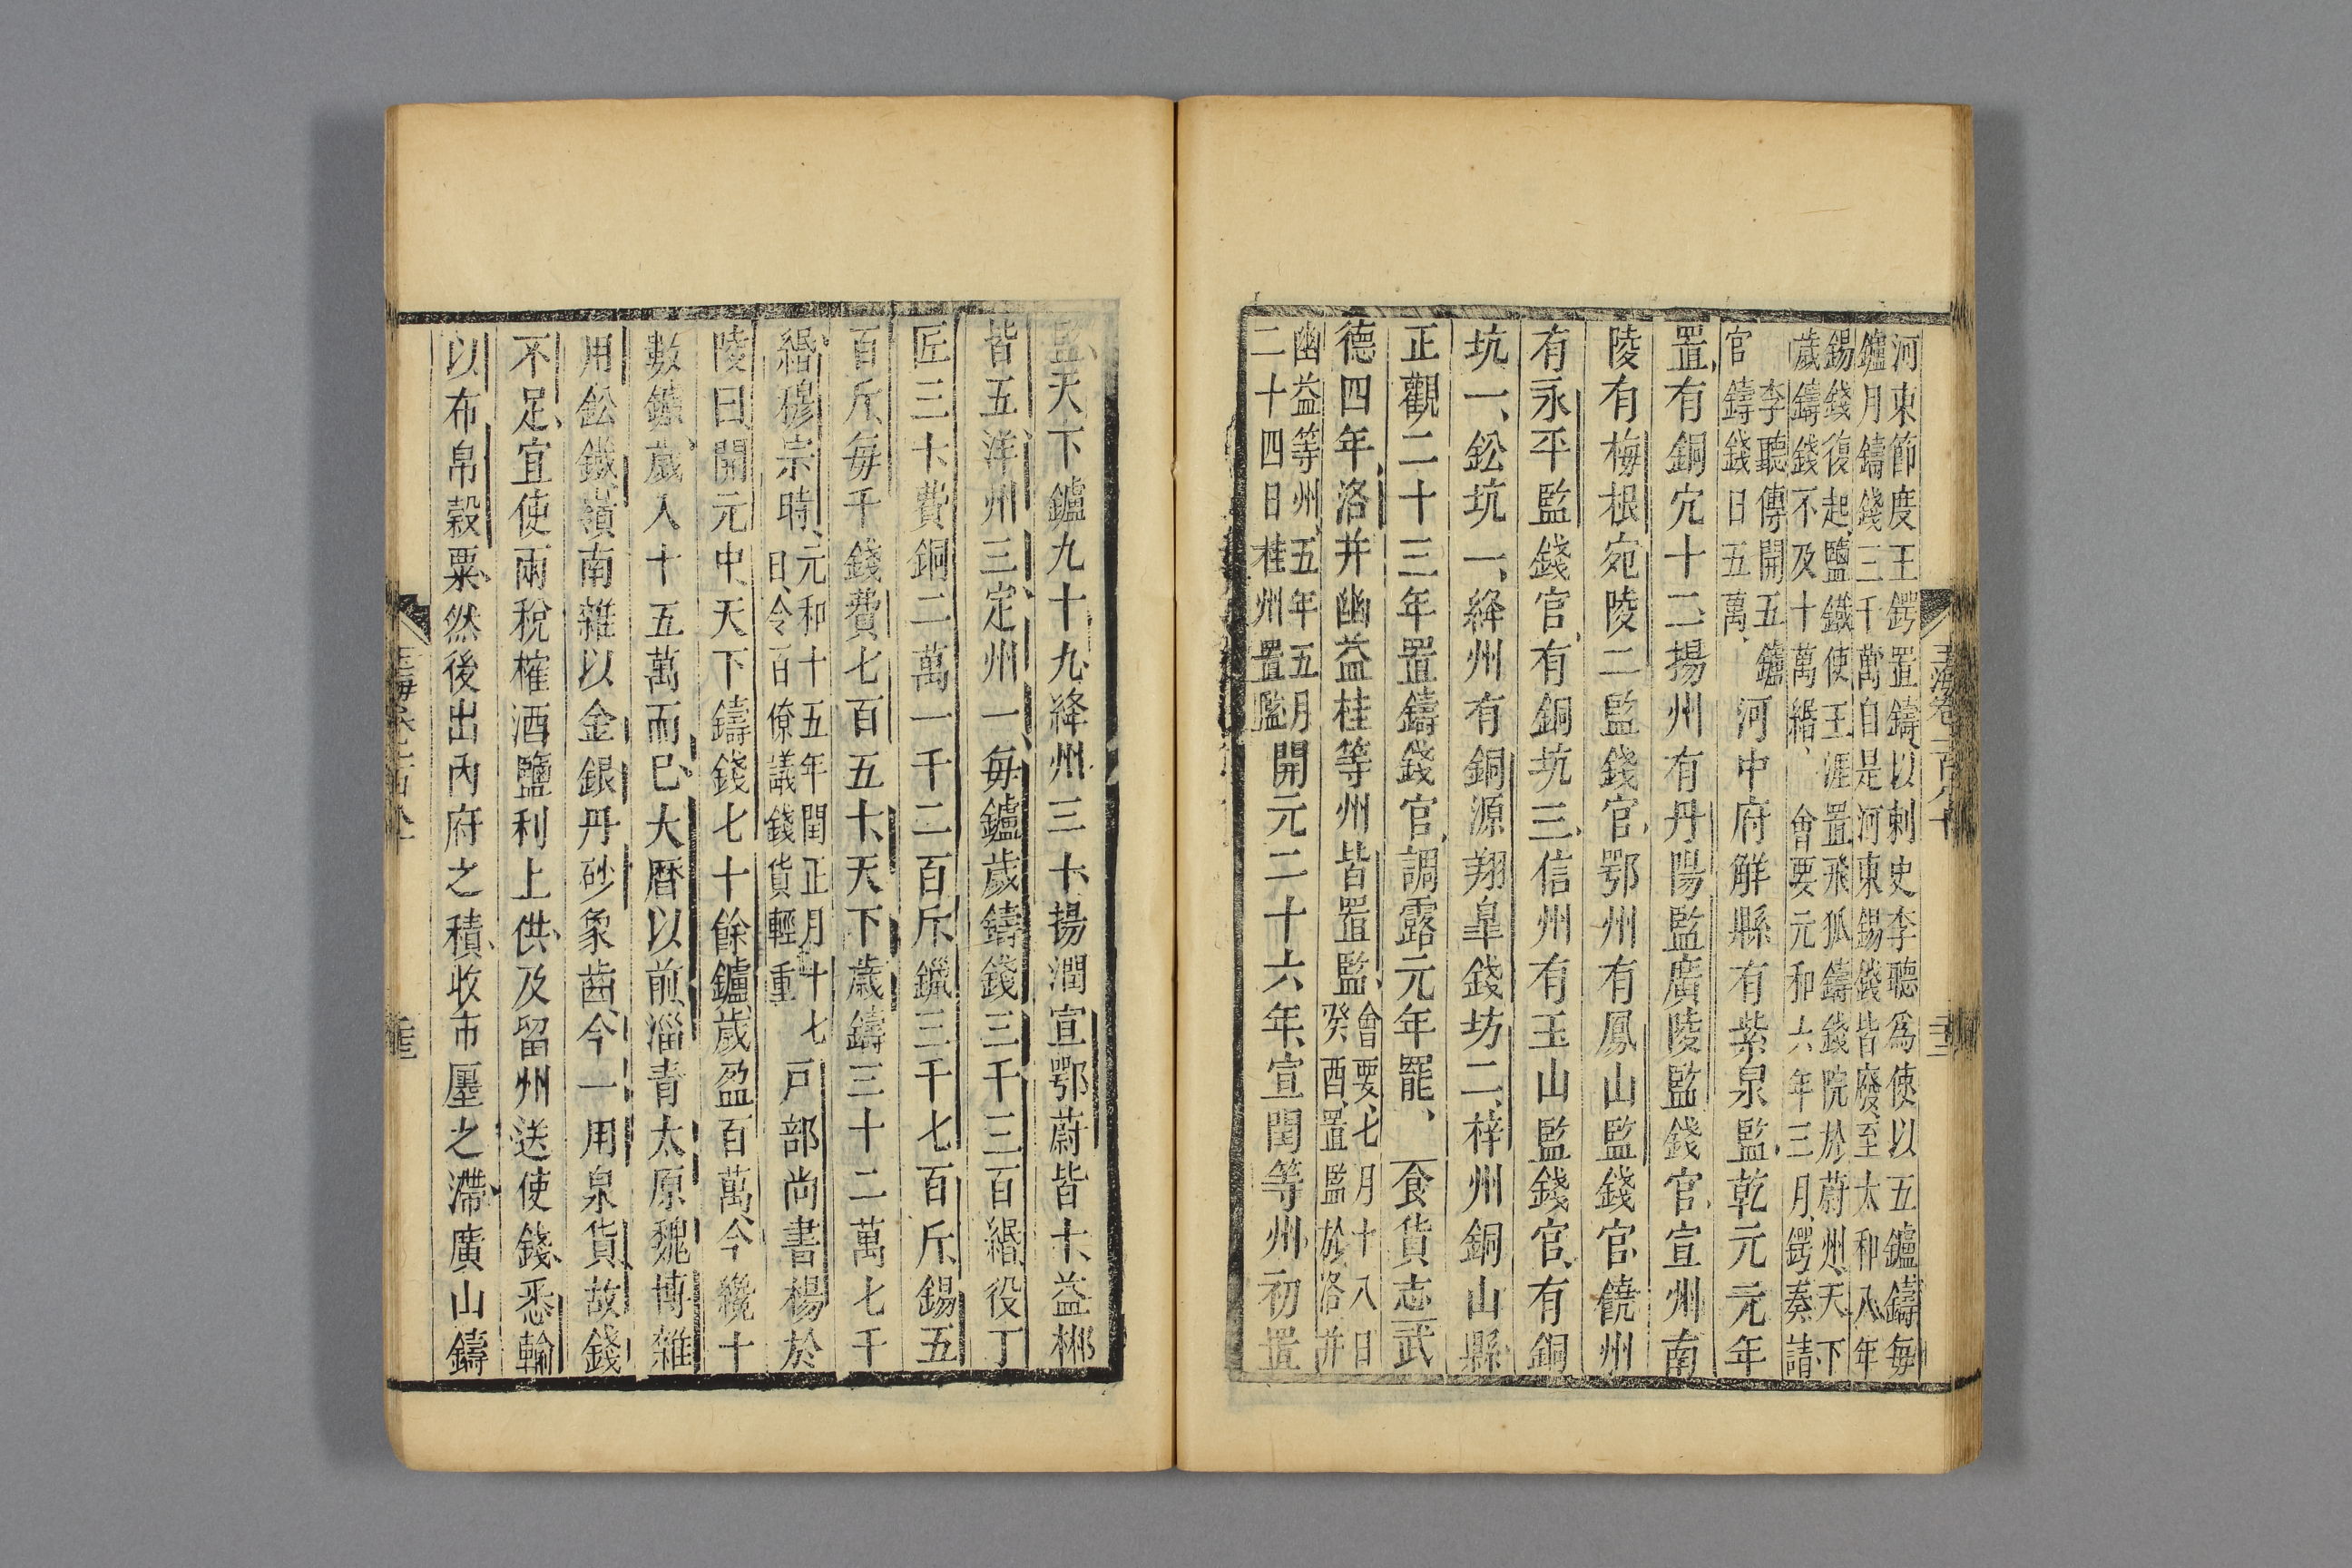 河東節度王鍔置鑪以刺史李聽爲使以五鑪鑄每
鑪月鑄錢三千萬自是河東錫錢皆廢至太和八年
錫錢復起鹽鐵使王涯置飛狐鑄錢院於蔚州天下
歲鑄錢不及十萬緡、會要元和六年三月鍔奏請
李聽傳開五鑪
官鑄錢日五萬、
河中府解縣有紫泉監乾元元年
置有銅宂十二揚州有丹陽監廣陵監錢官宣州南
陵有梅根宛陵二監錢官鄂州有鳳山監錢官饒州
有永平監錢官有銅坑三信州有玉山監錢官有銅
坑一、鈆坑一、絳州有銅源翔臯錢坊二梓州銅山縣
正觀二十三年置鑄錢官調露元年罷、食貨志武
德四年洛幷幽益桂等州皆置監、會要七月十八日
癸酉置監於洛幷
幽益等州五年五月
二十四日桂州置監
開元二十六年宣閏等州初置
監天下鑪九十九絳州三十揚潤宣鄂蔚皆十益郴
皆五洋州三定州一每鑪歲鑄錢三千三百緡役丁
匠三十費銅二萬一千二百斤鑞三千七百斤錫五
百斤每千錢費七百五十天下歲鑄三十二萬七千
緡穆宗時、元和十五年閏正月十七
日令百僚議錢貨輕重
戸部尚書楊於
陵曰開元中天下鑄錢七十餘鑪歲盈百萬今纔十
數鑪歲入十五萬而已大曆以前淄青太原魏博雜
用鈆鐵嶺南雜以金銀丹砂象齒今一用泉貨故錢
不足宜使兩稅榷酒鹽利上供及留州送使錢悉輸
以布帛穀粟然後出內府之積收市廛之滯廣山鑄